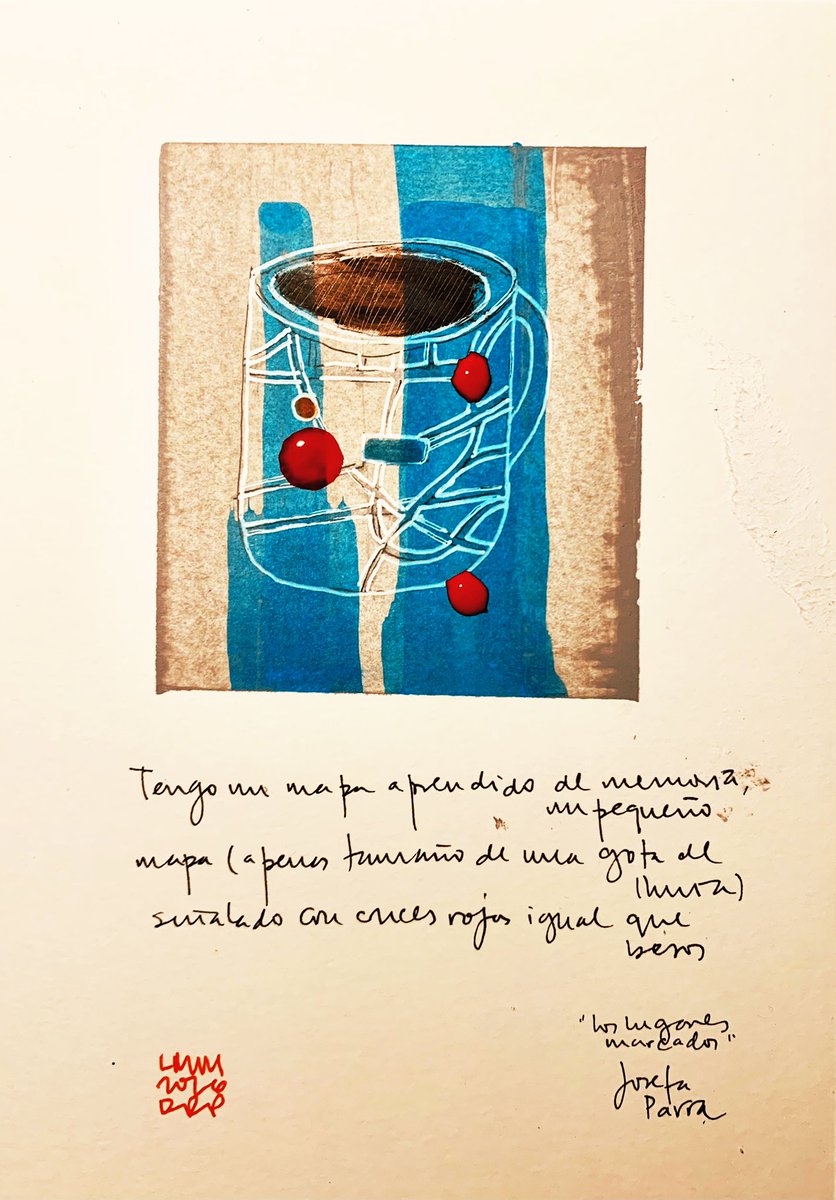 Tengo un mapa aprendido de memoria,
un pequeño
mapa (apenas tamaño de una gota de
lluvia)
señalado con cruces rojas igual que
besos
"Los lugares
marcados"
Josefa
Parra